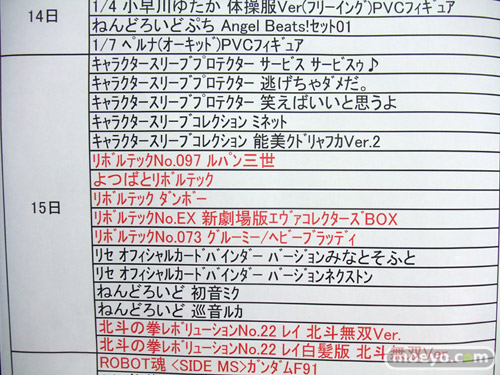 14日
1/4 小早川ゆたか 体操服Ver(フリーイング)PVCフィギュア
ねんどろいどぷち Angel Beats!セット01
1/7 ペルナ(オーキッド)PVCフィギュア
15日
キャラクタースリーブプロテクター サービス サービスゥ♪
キャラクタースリーブプロテクター 逃げちゃダメだ。
キャラクタースリーブプロテクター 笑えばいいと思うよ
キャラクタースリーブコレクション ミネット
キャラクタースリーブコレクション 能美クドリャフカVer.2
リボルテックNo.097 ルパン三世
よつばとリボルテック
リボルテック ダンボー
リボルテックNo.EX 新劇場版エヴァコレクターズBOX
リボルテックNo.073 グルーミー/ヘビーブラッディ
リセ オフィシャルカードバインダー バージョンみなとそふと
リセ オフィシャルカードバインダー バージョンネクストン
ねんどろいど 初音ミク
ねんどろいど 巡音ルカ
北斗の拳レボリューションNo.22 レイ 北斗無双Ver.
北斗の拳レボリューションNo.22 レイ白髪版 北斗無双Ver.
ROBOT魂 <SIDE MS>ガンダムF91
moeyo.com